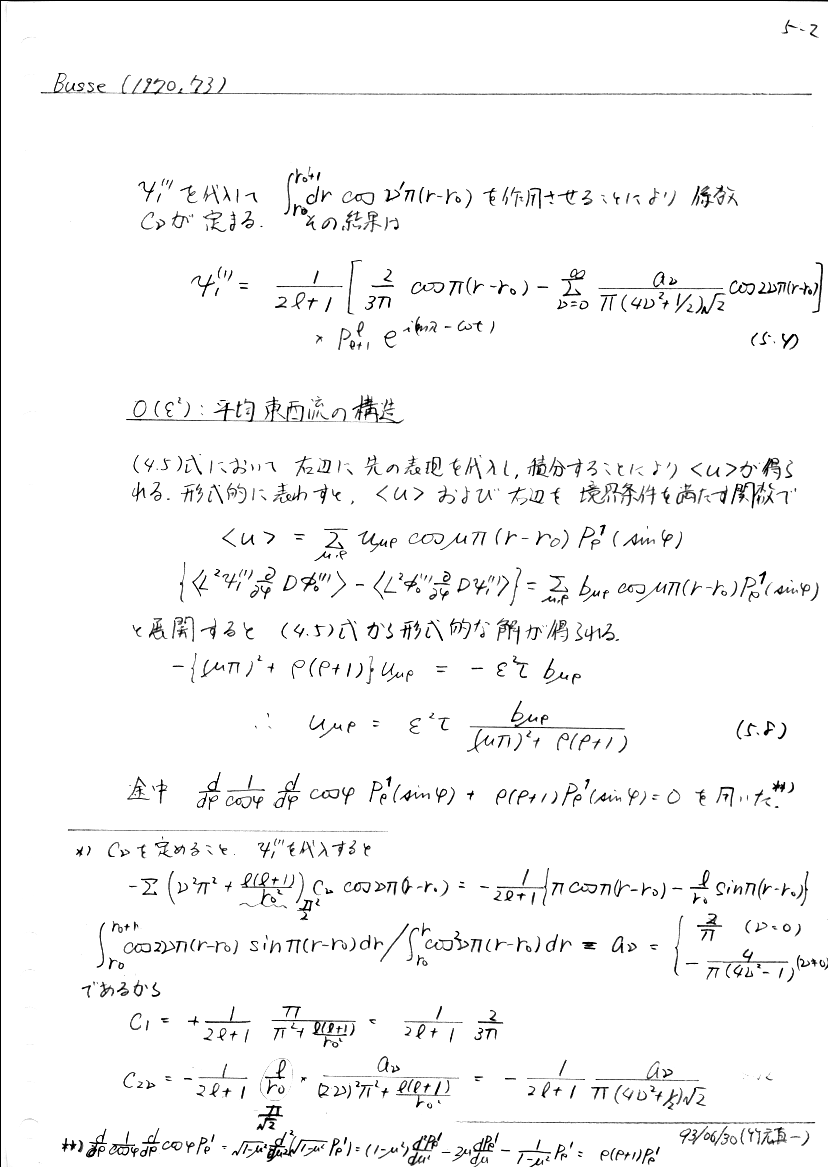 5-2
Busse (1970, 73)
ψ₁⁽¹⁾ を代入して ∫_{r₀}^{r₀+1} dr cos ν'π(r-r₀) を作用させることにより 係数
C_ν が 定まる. その結果は
ψ₁⁽¹⁾ = 1/(2ℓ+1) [ 2/(3π) cos π(r-r₀) - Σ_{ν=0}^{∞} a_ν/(π(4ν²+1/2)√2) cos 2νπ(r-r₀) ]
× P_{ℓ+1}^{ℓ} e^{i(mλ-ωt)} (5.4)
O(ε²) : 平均東西流の構造
(4.5)式において 右辺に 先の表現を代入し, 積分することにより <u> が得ら
れる. 形式的に表わすと, <u> および 右辺を 境界条件を満たす関数で
<u> = Σ_{μ,ρ} u_{μρ} cos μπ(r-r₀) P_ρ¹(sin φ)
{<L²ψ₁⁽¹⁾ ∂/∂φ DΦ₀⁽¹⁾> - <L²Φ₀⁽¹⁾ ∂/∂φ Dψ₁⁽¹⁾>} = Σ_{μ,ρ} b_{μρ} cos μπ(r-r₀) P_ρ¹(sin φ)
と展開すると (4.5)式から形式的な解が得られる.
-{(μπ)² + ρ(ρ+1)} u_{μρ} = - ε²τ b_{μρ}
∴ u_{μρ} = ε²τ b_{μρ}/((μπ)² + ρ(ρ+1)) (5.8)
途中 d/dφ 1/cosφ d/dφ cosφ P_ρ¹(sin φ) + ρ(ρ+1)P_ρ¹(sin φ) = 0 を用いた.**)
*) C_ν を定めること. ψ₁⁽¹⁾ を代入すると
-Σ (ν²π² + ℓ(ℓ+1)/r₀²) C_ν cos νπ(r-r₀) = - 1/(2ℓ+1) {π cos π(r-r₀) - ℓ/r₀ sin π(r-r₀)}
π²/2
∫_{r₀}^{r₀+1} cos 2νπ(r-r₀) sin π(r-r₀)dr / ∫_{r₀}^{r} cos² 2νπ(r-r₀)dr = a_ν = { 2/π (ν=0)
- 4/(π(4ν²-1)) (ν≠0)
であるから
C₁ = + 1/(2ℓ+1) π/(π²+ℓ(ℓ+1)/r₀²) = 1/(2ℓ+1) 2/(3π)
C_{2ν} = - 1/(2ℓ+1) (ℓ/r₀) × a_ν/((2ν)²π²+ℓ(ℓ+1)/r₀²) = - 1/(2ℓ+1) a_ν/(π(4ν²+1/2)√2)
π/√2
93/06/30(竹広真一)
**) d/dφ 1/cosφ d/dφ cosφ P_ρ¹ = √(1-μ²) d²/dμ² (√(1-μ²) P_ρ¹) = (1-μ²) d²P_ρ¹/dμ² - 2μ dP_ρ¹/dμ - 1/(1-μ²) P_ρ¹ = ρ(ρ+1)P_ρ¹